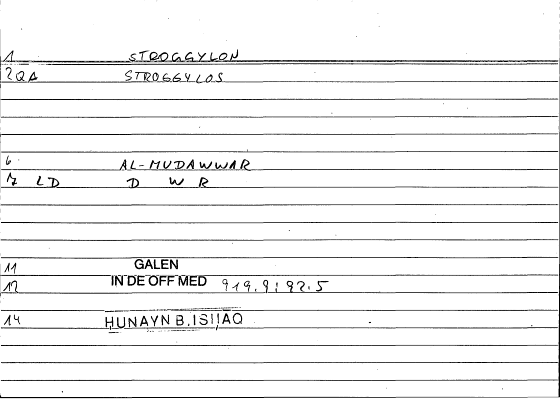 1 STROGGYLON
2 QA STROGGYLOS
6 AL-MUDAWWAR
7 LD D W R
11 GALEN
12 IN DE OFF MED 919.9; 92.5
14 HUNAYN B. ISḤAQ